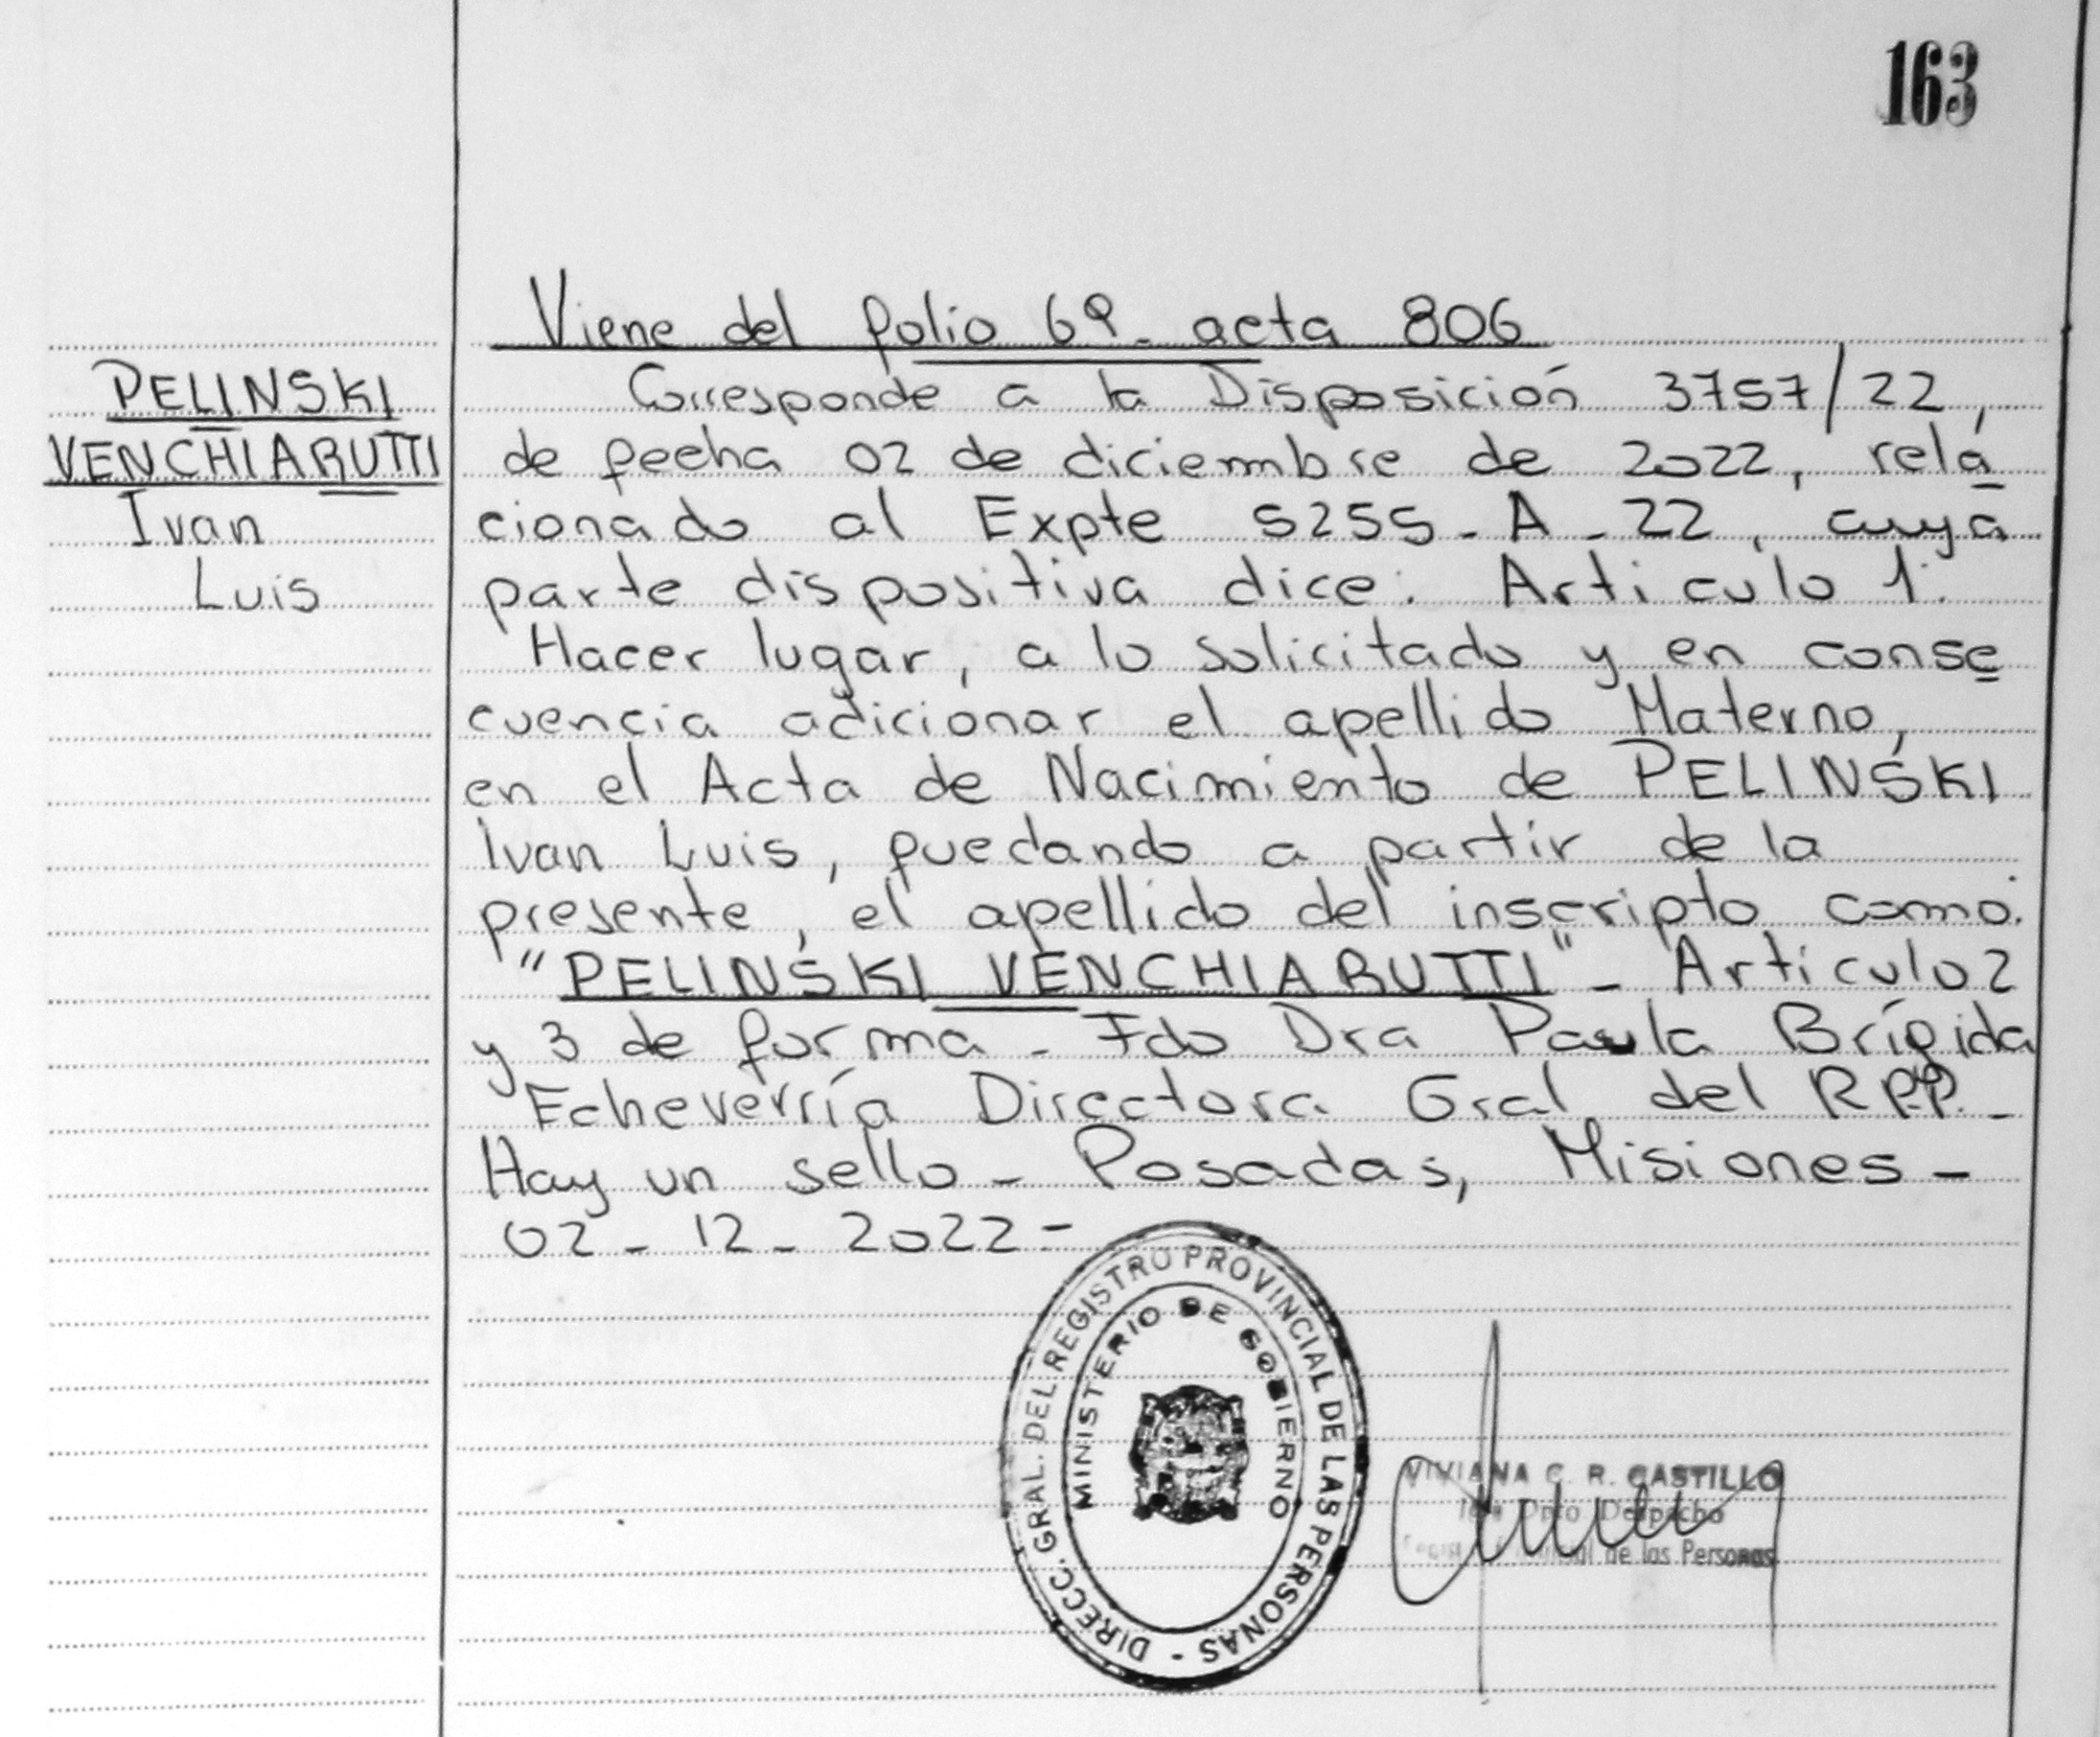 163
Viene del folio 69 - acta 806
PELINSKI
VENCHIARUTTI
Ivan
Luis
Corresponde a la Disposición 3757/22,
de fecha 02 de diciembre de 2022, rela
cionado al Expte 5255 - A - 22, cuya
parte dispositiva dice: Articulo 1:
Hacer lugar, a lo solicitado y en conse
cuencia adicionar el apellido Materno,
en el Acta de Nacimiento de PELINSKI
Ivan Luis, quedando a partir de la
presente, el apellido del inscripto como:
"PELINSKI VENCHIARUTTI" - Articulo 2
y 3 de forma - Fdo Dra Paula Brígida
Echeverría Directora Gral del R.P.P. -
Hay un sello - Posadas, Misiones -
02 - 12 - 2022 -
DIRECC. GRAL. DEL REGISTRO PROVINCIAL DE LAS PERSONAS -
MINISTERIO DE GOBIERNO
VIVIANA C. R. CASTILLO
Dpto Despacho
de las Personas